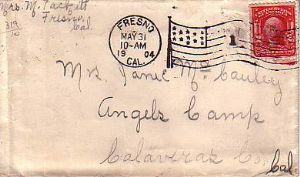 Mrs. M. Tackett
Fresno
Cal.
FRESNO
MAY 31
10-AM
1904
CAL.
1
Mrs Janie McCauley
Angels Camp
Calaveras Co.
Cal.